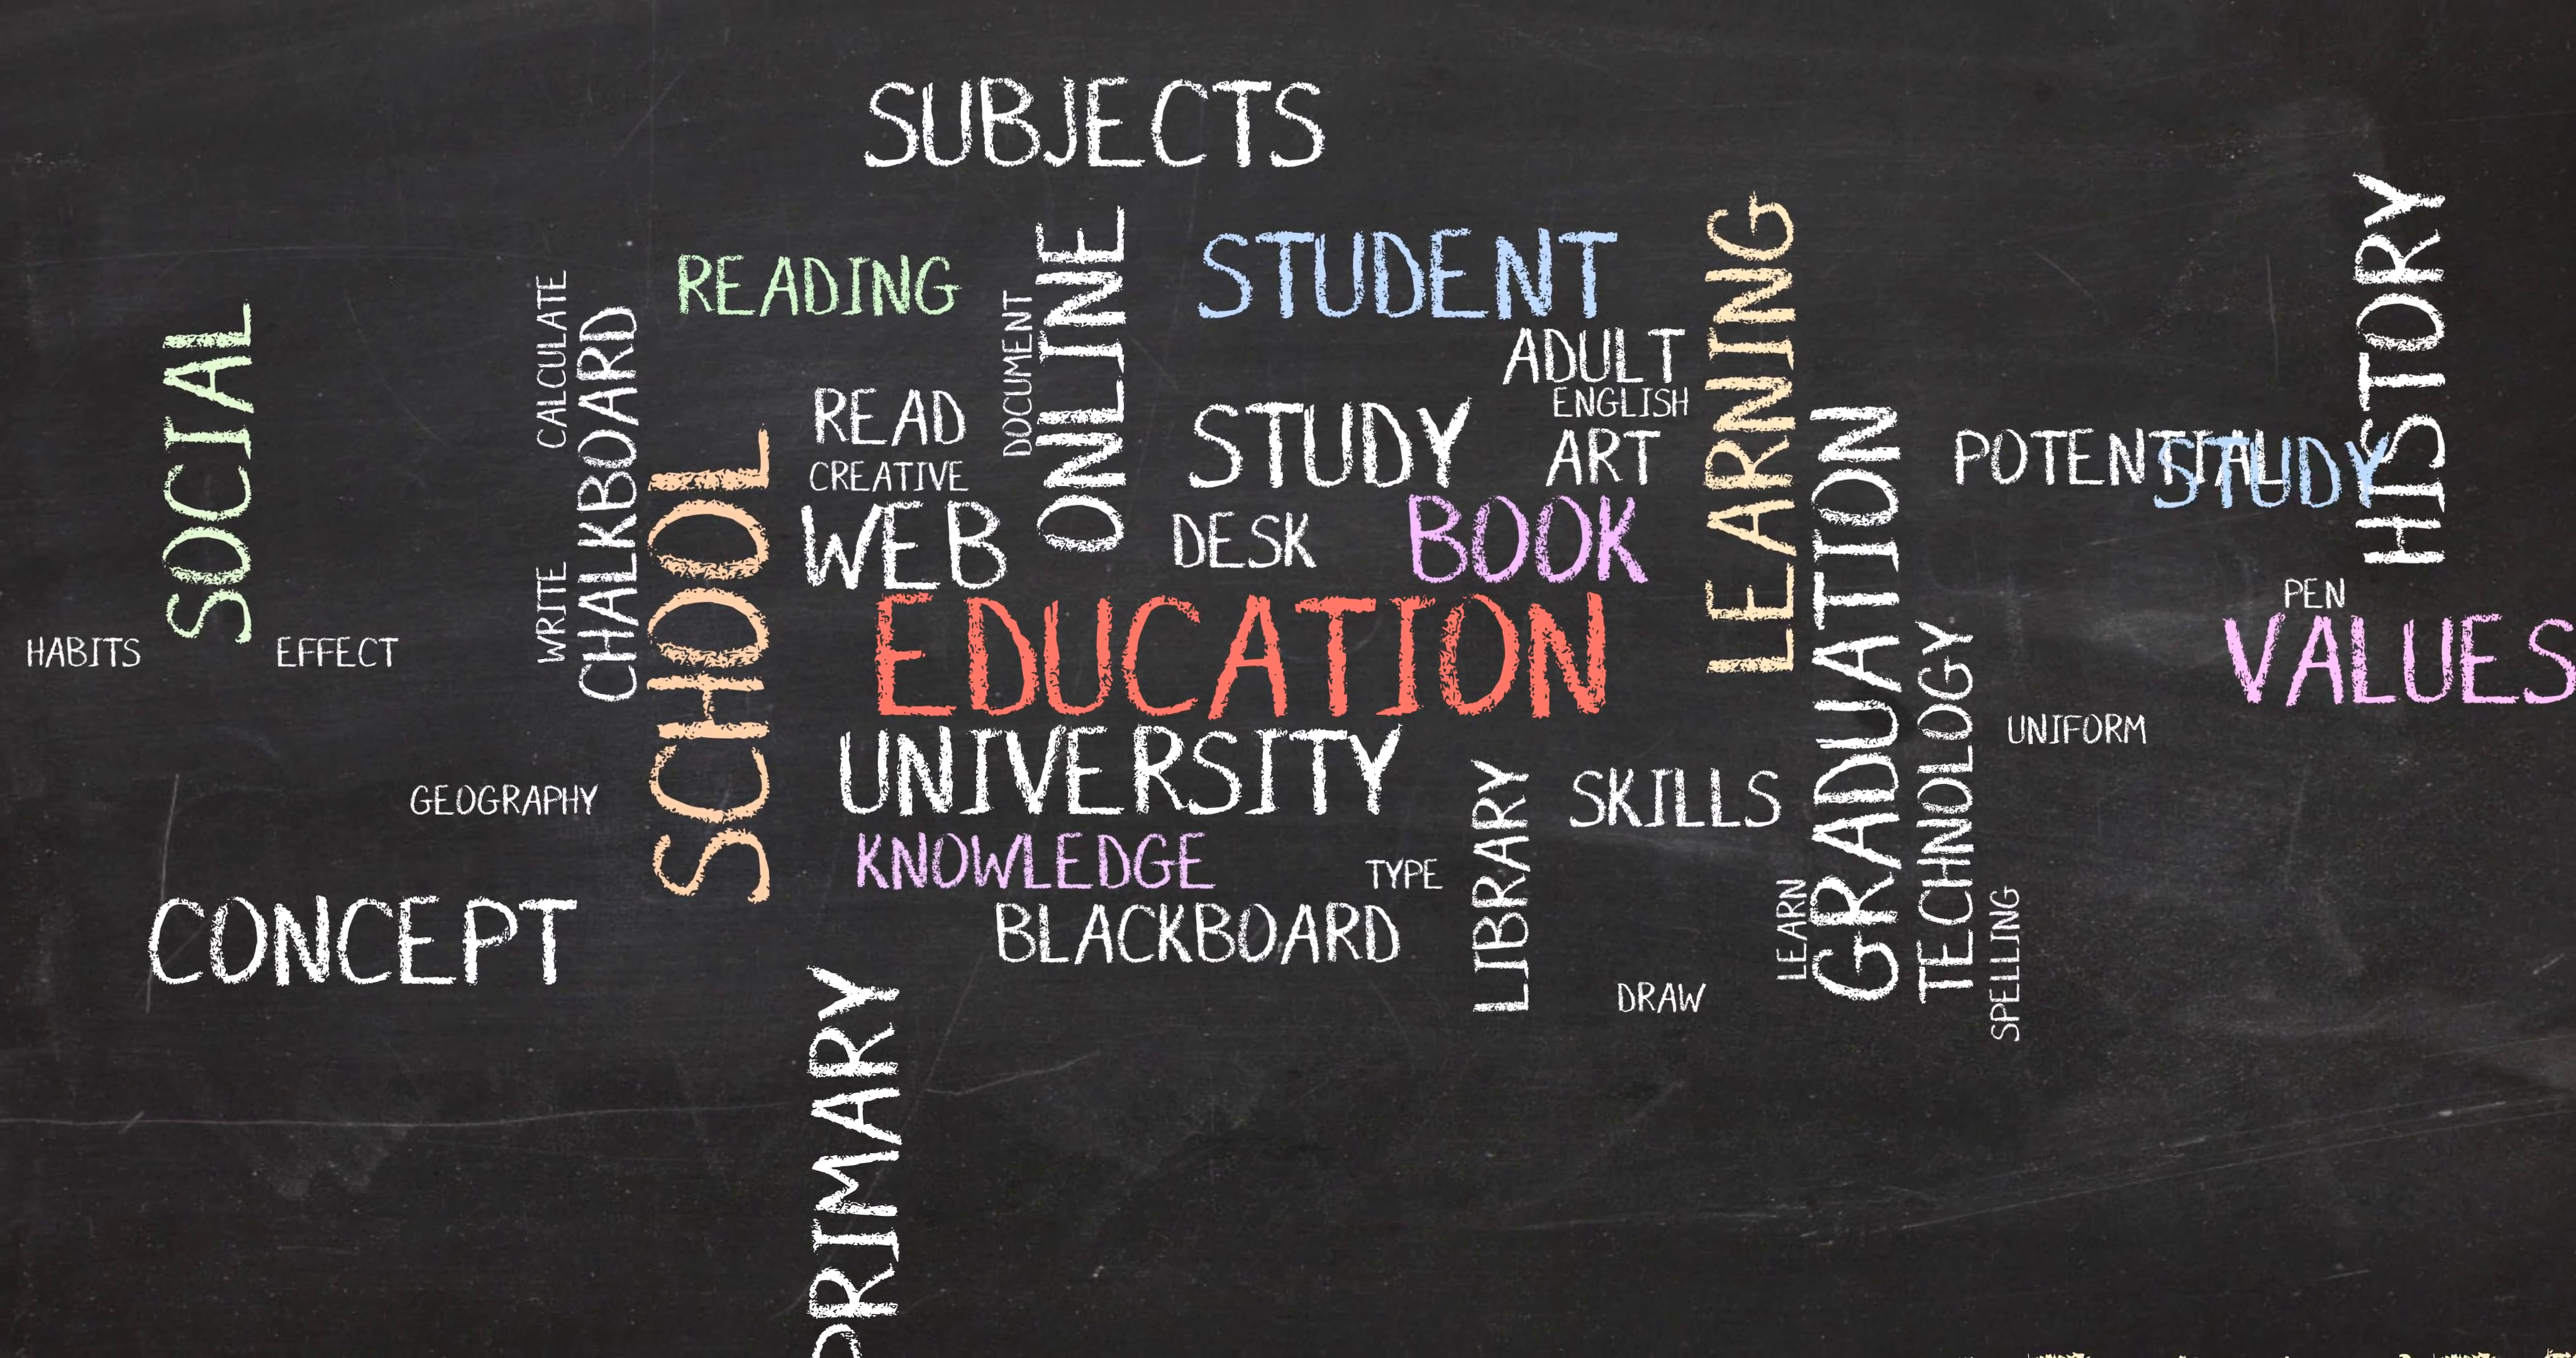 SUBJECTS
HISTORY
LEARNING
ONLINE
STUDENT
READING
CALCULATE
DOCUMENT
SOCIAL
CHALKBOARD
ADULT
READ
ENGLISH
STUDY
ART
GRADUATION
SCHOOL
POTENTIAL
STUDY
CREATIVE
WEB
DESK
BOOK
WRITE
PEN
EDUCATION
HABITS
EFFECT
VALUES
TECHNOLOGY
UNIFORM
UNIVERSITY
LIBRARY
SKILLS
GEOGRAPHY
KNOWLEDGE
TYPE
LEARN
SPELLING
BLACKBOARD
CONCEPT
DRAW
PRIMARY